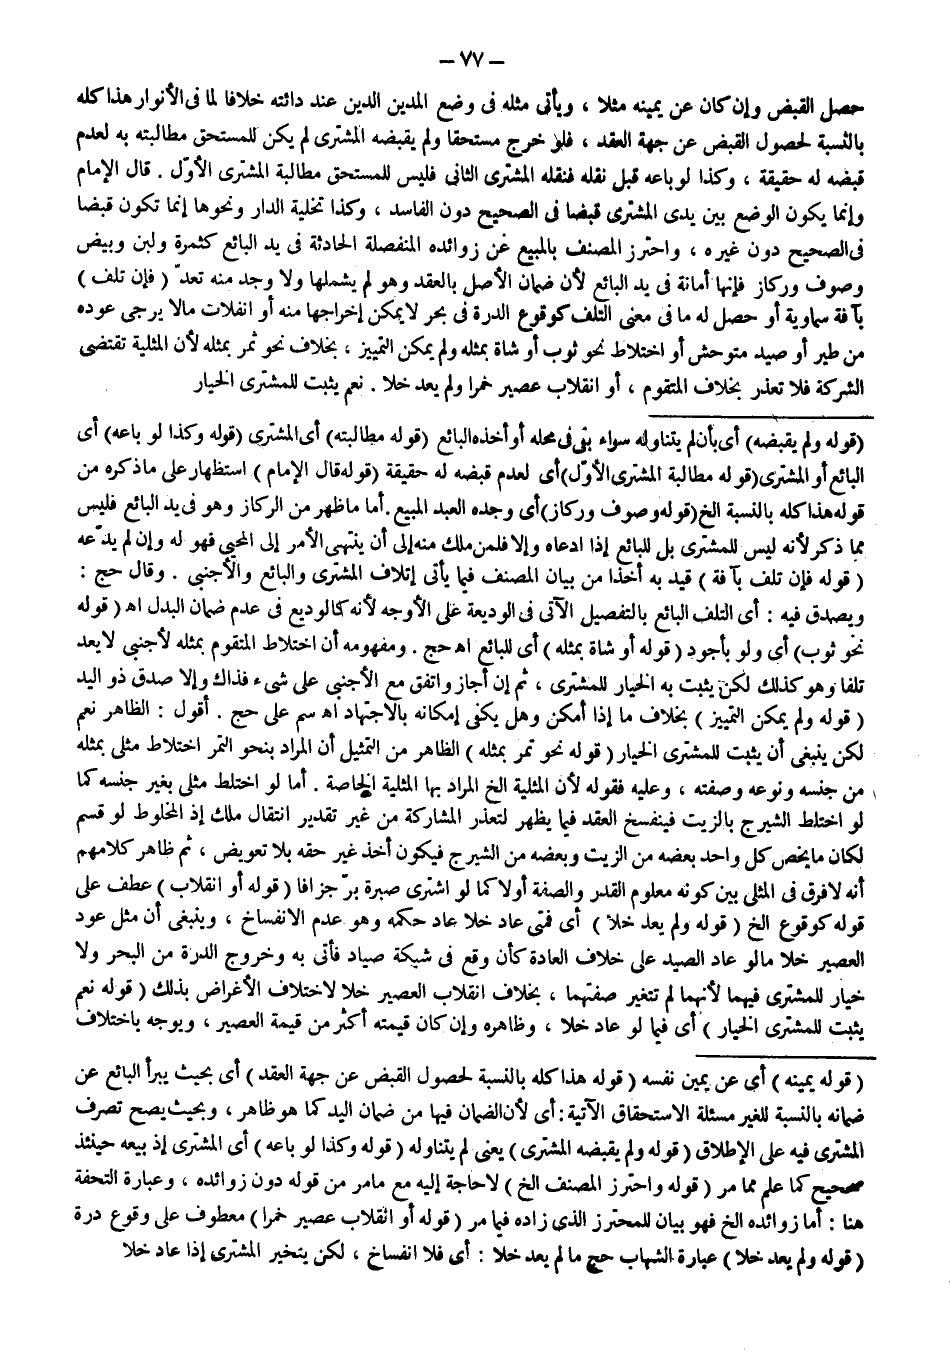 - ٧٧ -
حصل القبض وإن كان عن يمينه مثلا ، ويأتى مثله فى وضع المدين الدين عند دائنه خلافا لما فى الأنوار هذا كله
بالنسبة لحصول القبض عن جهة العقد ، فلو خرج مستحقا ولم يقبضه المشترى لم يكن للمستحق مطالبته به لعدم
قبضه له حقيقة ، وكذا لو باعه قبل نقله فنقله المشترى الثانى فليس للمستحق مطالبة المشترى الأوّل . قال الإمام
وإنما يكون الوضع بين يدى المشترى قبضا فى الصحيح دون الفاسد ، وكذا تخلية الدار ونحوها إنما تكون قبضا
فى الصحيح دون غيره ، واحترز المصنف بالمبيع عن زوائده المنفصلة الحادثة فى يد البائع كثمرة ولبن وبيض
وصوف وركاز فإنها أمانة فى يد البائع لأن ضمان الأصل بالعقد وهو لم يشملها ولا وجد منه تعدّ ( فإن تلف )
بآفة سماوية أو حصل له ما فى معنى التلف كوقوع الدرة فى بحر لايمكن إخراجها منه أو انفلات مالا يرجى عوده
من طير أو صيد متوحش أو اختلاط نحو ثوب أو شاة بمثله ولم يمكن التمييز ، بخلاف نحو ثمر بمثله لأن المثلية تقتضى
الشركة فلا تعذر بخلاف المتقوم ، أو انقلاب عصير خمرا ولم يعد خلا . نعم يثبت للمشترى الخيار
(قوله ولم يقبضه) أى بأن لم يتناوله سواء بقى فى محله أو أخذه البائع (قوله مطالبته) أى المشترى (قوله وكذا لو باعه) أى
البائع أو المشترى (قوله مطالبة المشترى الأوّل) أى لعدم قبضه له حقيقة (قوله قال الإمام ) استظهار على ماذكره من
قوله هذا كله بالنسبة الخ (قوله وصوف وركاز) أى وجده العبد المبيع . أما ماظهر من الركاز وهو فى يد البائع فليس
مما ذكر لأنه ليس للمشترى بل للبائع إذا ادعاه وإلا فلمن ملك منه إلى أن ينتهى الأمر إلى المحيى فهو له وإن لم يدّعه
( قوله فإن تلف بآفة ) قيد به أخذا من بيان المصنف فيما يأتى إتلاف المشترى والبائع والأجنبى . وقال حج :
ويصدق فيه : أى التلف البائع بالتفصيل الآتى فى الوديعة على الأوجه لأنه كالوديع فى عدم ضمان البدل اه ( قوله
نحو ثوب) أى ولو بأجود ( قوله أو شاة بمثله ) أى للبائع اه حج . ومفهومه أن اختلاط المتقوم بمثله لأجنبى لايعد
تلفا وهو كذلك لكن يثبت به الخيار للمشترى ، ثم إن أجاز واتفق مع الأجنبى على شىء فذاك وإلا صدق ذو اليد
( قوله ولم يمكن التمييز ) بخلاف ما إذا أمكن وهل يكفى إمكانه بالاجتهاد اه سم على حج . أقول : الظاهر نعم
لكن ينبغى أن يثبت للمشترى الخيار ( قوله نحو تمر بمثله ) الظاهر من التمثيل أن المراد بنحو التمر اختلاط مثلى بمثله
من جنسه ونوعه وصفته ، وعليه فقوله لأن المثلية الخ المراد بها المثلية الخاصة . أما لو اختلط مثلى بغير جنسه كما
لو اختلط الشيرج بالزيت فينفسخ العقد فيما يظهر لتعذر المشاركة من غير تقدير انتقال ملك إذ المخلوط لو قسم
لكان مايخص كل واحد بعضه من الزيت وبعضه من الشيرج فيكون أخذ غير حقه بلا تعويض ، ثم ظاهر كلامهم
أنه لافرق فى المثلى بين كونه معلوم القدر والصفة أولا كما لو اشترى صبرة برّ جزافا ( قوله أو انقلاب ) عطف على
قوله كوقوع الخ ( قوله ولم يعد خلا ) أى فمتى عاد خلا عاد حكمه وهو عدم الانفساخ ، وينبغى أن مثل عود
العصير خلا مالو عاد الصيد على خلاف العادة كأن وقع فى شبكة صياد فأتى به وخروج الدرة من البحر ولا
خيار للمشترى فيهما لأنهما لم تتغير صفتهما ، بخلاف انقلاب العصير خلا لاختلاف الأغراض بذلك ( قوله نعم
يثبت للمشترى الخيار ) أى فيما لو عاد خلا ، وظاهره وإن كان قيمته أكثر من قيمة العصير ، ويوجه باختلاف
( قوله يمينه ) أى عن يمين نفسه ( قوله هذا كله بالنسبة لحصول القبض عن جهة العقد ) أى بحيث يبرأ البائع عن
ضمانه بالنسبة للغير مسئلة الاستحقاق الآتية : أى لأن الضمان فيها من ضمان اليد كما هو ظاهر ، وبحيث يصح تصرف
المشترى فيه على الإطلاق ( قوله ولم يقبضه المشترى ) يعنى لم يتناوله ( قوله وكذا لو باعه ) أى المشترى إذ بيعه حينئذ
صحيح كما علم مما مر ( قوله واحترز المصنف الخ ) لاحاجة إليه مع مامر من قوله دون زوائده ، وعبارة التحفة
هنا : أما زوائده الخ فهو بيان للمحترز الذى زاده فيما مر ( قوله أو انقلاب عصير خمرا ) معطوف على وقوع درة
( قوله ولم يعد خلا ) عبارة الشهاب حج ما لم يعد خلا : أى فلا انفساخ ، لكن يتخير المشترى إذا عاد خلا